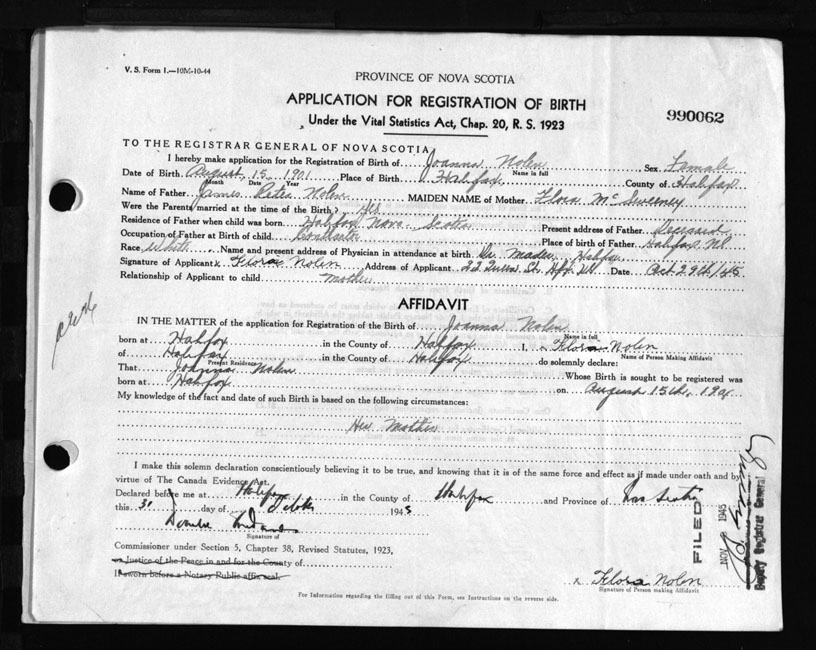 V. S. Form 1.—10M-10-44
PROVINCE OF NOVA SCOTIA
APPLICATION FOR REGISTRATION OF BIRTH
990062
Under the Vital Statistics Act, Chap. 20, R. S. 1923
TO THE REGISTRAR GENERAL OF NOVA SCOTIA
I hereby make application for the Registration of Birth of Joanna Nolen Sex Female
Name in full
Date of Birth August 15 1901 Place of Birth Halifax County of Halifax
Month Date Year
Name of Father James Peter Nolen MAIDEN NAME of Mother Flora McSweeney
Were the Parents married at the time of the Birth? Yes
Residence of Father when child was born Halifax Nova Scotia Present address of Father Deceased
Occupation of Father at Birth of child Contractor Place of birth of Father Halifax
Race White Name and present address of Physician in attendance at birth Dr. Halifax
Signature of Applicant x Flora Nolen Address of Applicant St. Date Oct 29th/45
Relationship of Applicant to child Mother
AFFIDAVIT
IN THE MATTER of the application for Registration of the Birth of Joanna Nolen
Name in full
born at Halifax in the County of Halifax I, x Flora Nolen
Name of Person Making Affidavit
of Halifax in the County of Halifax do solemnly declare:
Present Residence
That Joanna Nolen Whose Birth is sought to be registered was
born at Halifax on August 15th, 1901
My knowledge of the fact and date of such Birth is based on the following circumstances:
Her Mother
I make this solemn declaration conscientiously believing it to be true, and knowing that it is of the same force and effect as if made under oath and by
virtue of The Canada Evidence Act.
Declared before me at Halifax in the County of Halifax and Province of Nova Scotia
this day of 1945
Signature of
Commissioner under Section 5, Chapter 38, Revised Statutes, 1923,
or Justice of the Peace in and for the County of
If sworn before a Notary Public affix seal.
x Flora Nolen
Signature of Person making Affidavit
For Information regarding the filling out of this Form, see Instructions on the reverse side.
FILED
NOV 1945
Deputy Registrar General